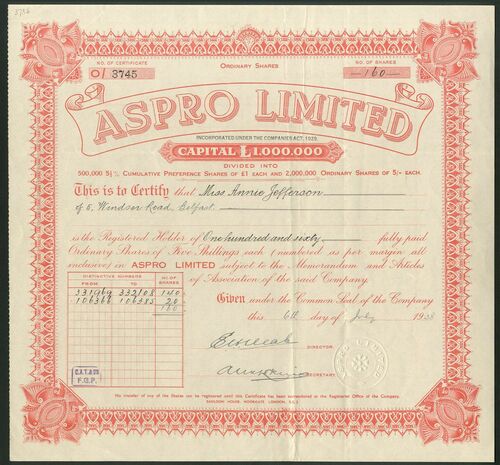 3745
NO. OF CERTIFICATE
ORDINARY SHARES
NO. OF SHARES
O/ 3745
160
ASPRO LIMITED
INCORPORATED UNDER THE COMPANIES ACT, 1929.
CAPITAL £1,000,000
DIVIDED INTO
500,000 5½% CUMULATIVE PREFERENCE SHARES OF £1 EACH AND 2,000,000 ORDINARY SHARES OF 5/- EACH.
This is to Certify that Miss Annie Jefferson
of 5, Windsor Road, Belfast.
is the Registered Holder of One hundred and sixty fully paid
Ordinary Shares of Five Shillings each (numbered as per margin all
inclusive) in ASPRO LIMITED subject to the Memorandum and Articles
of Association of the said Company.
DISTINCTIVE NUMBERS
NO. OF SHARES
FROM TO
331969 332108 140
106366 106385 20
160
Given under the Common Seal of the Company
this 6th day of July 1938
DIRECTOR.
SECRETARY.
ASPRO LIMITED
F.G.P.
No transfer of any of the Shares can be registered until this Certificate has been surrendered at the Registered Office of the Company.